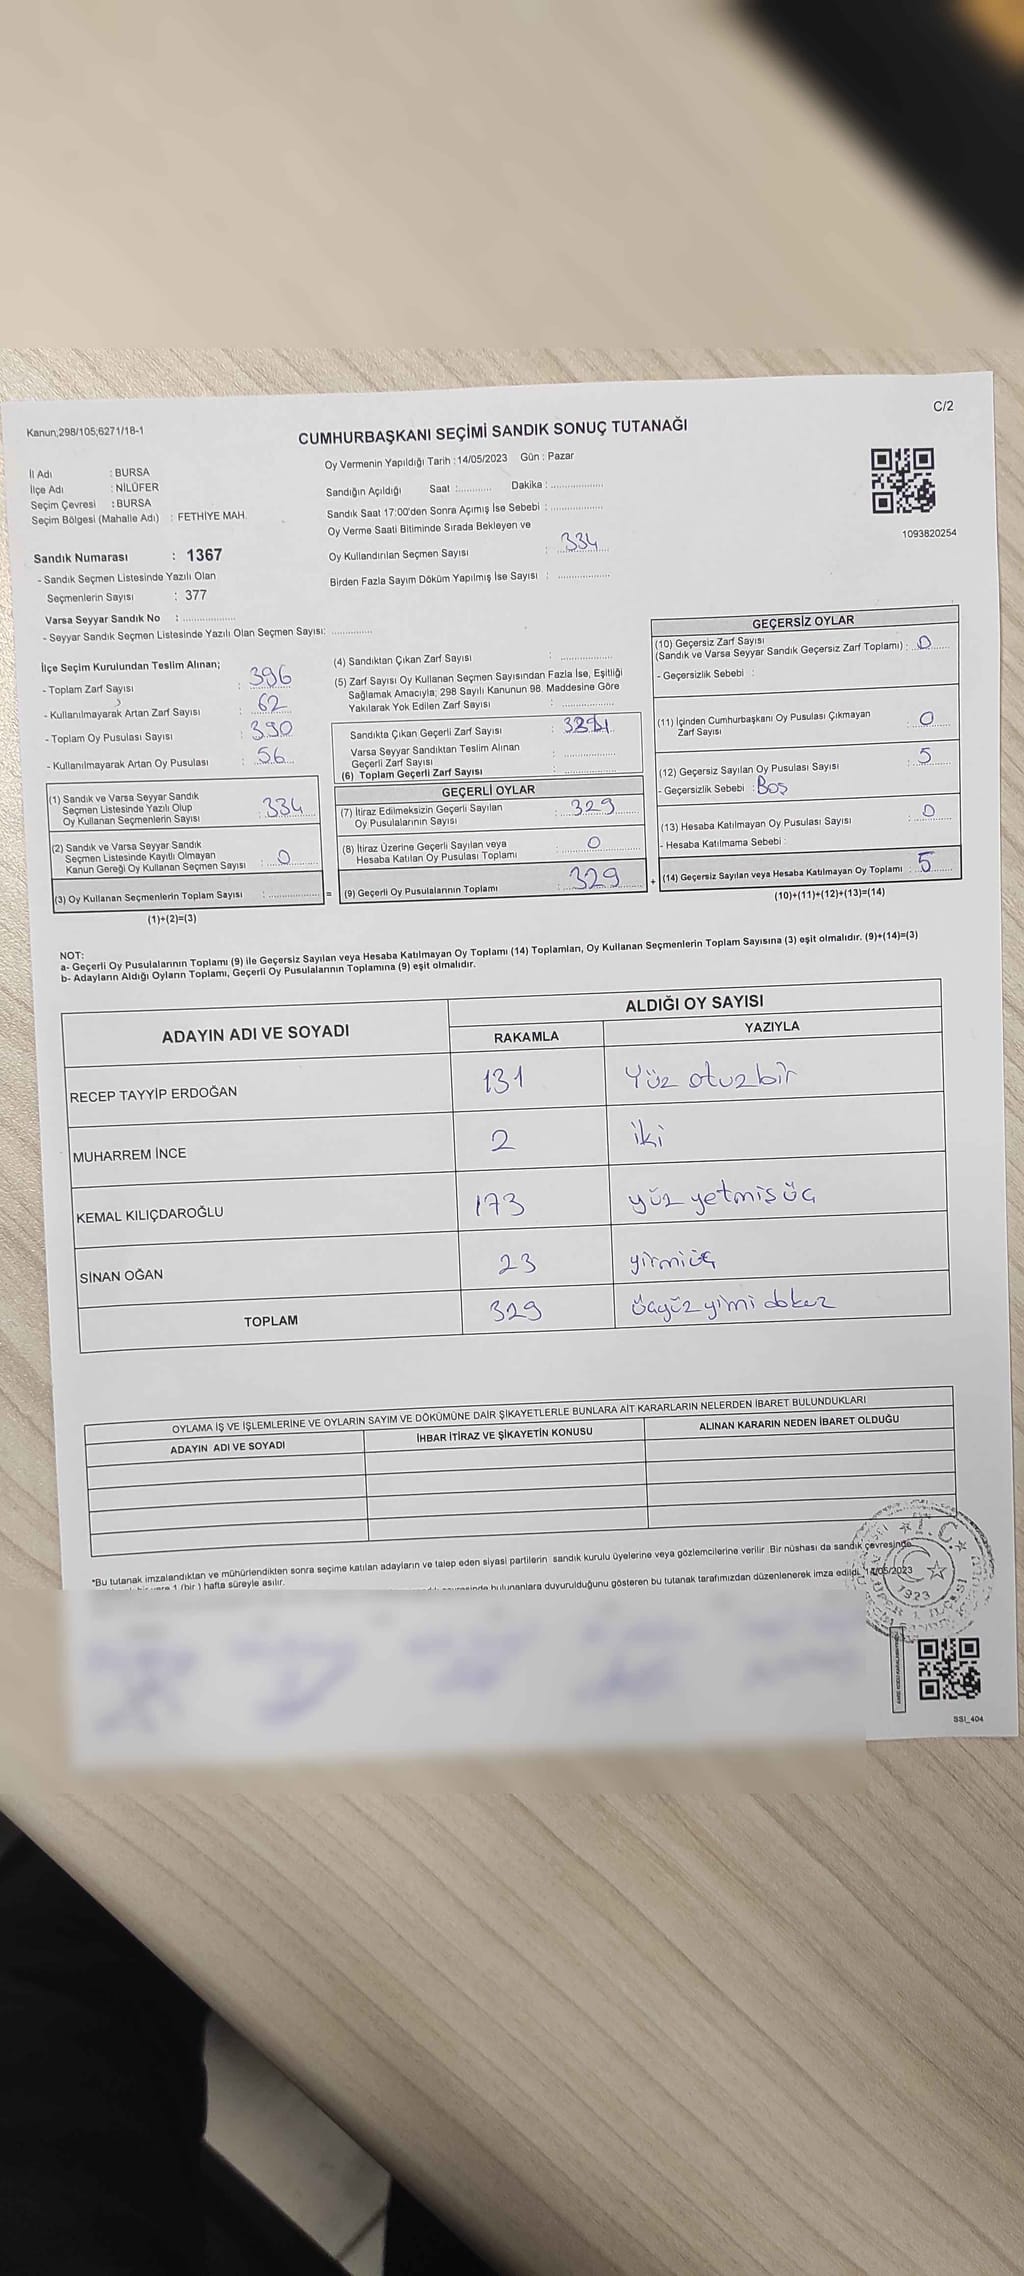 C/2
Kanun;298/105;6271/18-1
CUMHURBAŞKANI SEÇİMİ SANDIK SONUÇ TUTANAĞI
İl Adı : BURSA
İlçe Adı : NİLÜFER
Seçim Çevresi : BURSA
Seçim Bölgesi (Mahalle Adı) : FETHİYE MAH.
Oy Vermenin Yapıldığı Tarih : 14/05/2023 Gün : Pazar
Sandığın Açıldığı Saat :........... Dakika :...................
Sandık Saat 17:00'den Sonra Açımış İse Sebebi :...................
Oy Verme Saati Bitiminde Sırada Bekleyen ve
Oy Kullandırılan Seçmen Sayısı : 334
Birden Fazla Sayım Döküm Yapılmış İse Sayısı : ...................
1093820254
Sandık Numarası : 1367
- Sandık Seçmen Listesinde Yazılı Olan
Seçmenlerin Sayısı : 377
Varsa Seyyar Sandık No : ...................
- Seyyar Sandık Seçmen Listesinde Yazılı Olan Seçmen Sayısı: ..............
İlçe Seçim Kurulundan Teslim Alınan;
- Toplam Zarf Sayısı : 396
- Kullanılmayarak Artan Zarf Sayısı : 62
- Toplam Oy Pusulası Sayısı : 390
- Kullanılmayarak Artan Oy Pusulası : 56
(1) Sandık ve Varsa Seyyar Sandık
Seçmen Listesinde Yazılı Olup
Oy Kullanan Seçmenlerin Sayısı : 334
(2) Sandık ve Varsa Seyyar Sandık
Seçmen Listesinde Kayıtlı Olmayan
Kanun Gereği Oy Kullanan Seçmen Sayısı : 0
(3) Oy Kullanan Seçmenlerin Toplam Sayısı : ................... =
(1)+(2)=(3)
(4) Sandıktan Çıkan Zarf Sayısı : ...................
(5) Zarf Sayısı Oy Kullanan Seçmen Sayısından Fazla İse, Eşitliği
Sağlamak Amacıyla; 298 Sayılı Kanunun 98. Maddesine Göre
Yakılarak Yok Edilen Zarf Sayısı : ...................
Sandıkta Çıkan Geçerli Zarf Sayısı :
Varsa Seyyar Sandıktan Teslim Alınan
Geçerli Zarf Sayısı : ...................
(6) Toplam Geçerli Zarf Sayısı : ...................
GEÇERLİ OYLAR
(7) İtiraz Edilmeksizin Geçerli Sayılan
Oy Pusulalarının Sayısı : 329
(8) İtiraz Üzerine Geçerli Sayılan veya
Hesaba Katılan Oy Pusulası Toplamı : 0
(9) Geçerli Oy Pusulalarının Toplamı : 329 +
GEÇERSİZ OYLAR
(10) Geçersiz Zarf Sayısı
(Sandık ve Varsa Seyyar Sandık Geçersiz Zarf Toplamı) : 0
- Geçersizlik Sebebi :
(11) İçinden Cumhurbaşkanı Oy Pusulası Çıkmayan
Zarf Sayısı : 0
(12) Geçersiz Sayılan Oy Pusulası Sayısı : 5
- Geçersizlik Sebebi : Boş
(13) Hesaba Katılmayan Oy Pusulası Sayısı : 0
- Hesaba Katılmama Sebebi :
(14) Geçersiz Sayılan veya Hesaba Katılmayan Oy Toplamı : 5
(10)+(11)+(12)+(13)=(14)
NOT:
a- Geçerli Oy Pusulalarının Toplamı (9) ile Geçersiz Sayılan veya Hesaba Katılmayan Oy Toplamı (14) Toplamları, Oy Kullanan Seçmenlerin Toplam Sayısına (3) eşit olmalıdır. (9)+(14)=(3)
b- Adayların Aldığı Oyların Toplamı, Geçerli Oy Pusulalarının Toplamına (9) eşit olmalıdır.
ADAYIN ADI VE SOYADI
ALDIĞI OY SAYISI
RAKAMLA YAZIYLA
RECEP TAYYİP ERDOĞAN 131 Yüz otuzbir
MUHARREM İNCE 2 iki
KEMAL KILIÇDAROĞLU 173 yüz yetmiş üç
SİNAN OĞAN 23 yirmiüç
TOPLAM 329 üçyüz yimi dokuz
OYLAMA İŞ VE İŞLEMLERİNE VE OYLARIN SAYIM VE DÖKÜMÜNE DAİR ŞİKAYETLERLE BUNLARA AİT KARARLARIN NELERDEN İBARET BULUNDUKLARI
ADAYIN ADI VE SOYADI İHBAR İTİRAZ VE ŞİKAYETİN KONUSU ALINAN KARARIN NEDEN İBARET OLDUĞU
*Bu tutanak imzalandıktan ve mühürlendikten sonra seçime katılan adayların ve talep eden siyasi partilerin sandık kurulu üyelerine veya gözlemcilerine verilir. Bir nüshası da sandık çevresinde
1 (bir) hafta süreyle asılır.
bulunanlara duyurulduğunu gösteren bu tutanak tarafımızdan düzenlenerek imza edildi. 14/05/2023
T.C.
1923
SSI_404